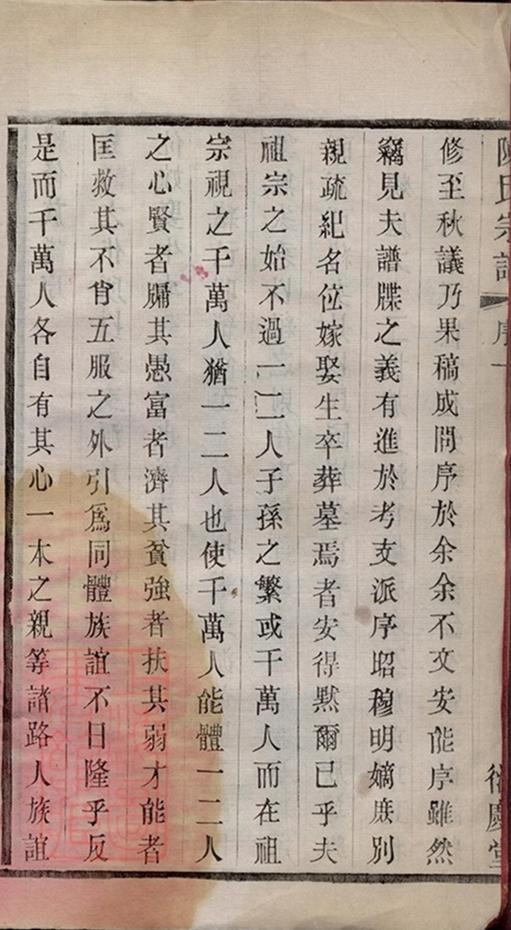 陳氏宗譜 序一 衍慶堂
修至秋議乃果稿成問序於余余不文安能序雖然
竊見夫譜牒之義有進於考支派序昭穆明嫡庶別
親疏紀名位嫁娶生卒葬墓焉者安得默爾已乎夫
祖宗之始不過一二人子孫之繁或千萬人而在祖
宗視之千萬人猶一二人也使千萬人能體一二人
之心賢者牖其愚富者濟其貧強者扶其弱才能者
匡救其不肖五服之外引爲同體族誼不日隆乎反
是而千萬人各自有其心一本之親等諸路人族誼